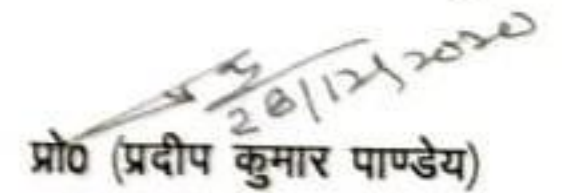 28/12/2020
प्रो0 (प्रदीप कुमार पाण्डेय)